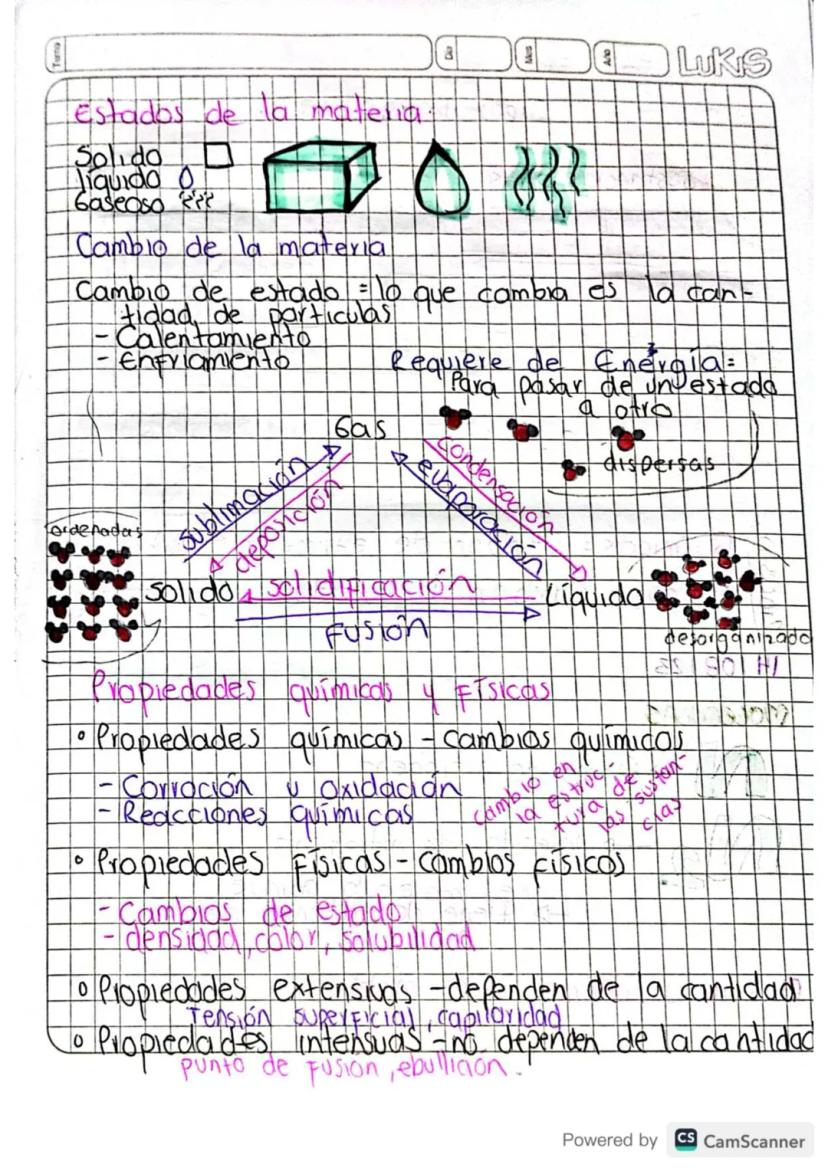 Tema
Día
Mes
Año
LUKIS
Estados de la materia.
Solido
líquido
Gaseoso
Cambio de la materia
Cambio de estado = lo que cambia es la can-
tidad de particulas
- Calentamiento
- Enfriamiento
Requiere de Energía:
Para pasar de un estado
a otro
Gas
dispersas
sublimación
deposición
condensación
evaporación
ordenadas
Solido
solidificación
Líquido
Fusión
desorganizado
Propiedades químicas y Físicas
• Propiedades químicas - cambios químicos
- Corroción u oxidación
- Reacciones químicas
Cambio en
la estruc-
tura de
las sustan-
cias
• Propiedades Físicas - cambios físicos
- Cambios de estado
- densidad, color, solubilidad
• Propiedades extensivas - dependen de la cantidad
Tensión superficial, capilaridad
• Propiedades intensivas - no dependen de la cantidad
punto de fusion, ebullición.
Powered by CS CamScanner